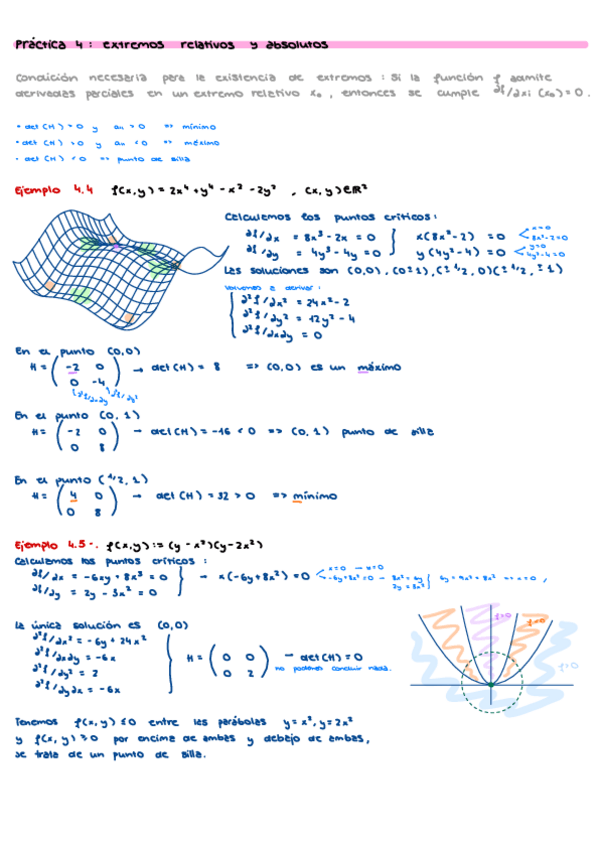 Práctica 4: extremos relativos y absolutos
Condición necesaria para la existencia de extremos: Si la función f admite
derivadas parciales en un extremo relativo x₀, entonces se cumple ∂f/∂xi (x₀)=0.
• det(H)>0 y a₁₁>0 => mínimo
• det(H)>0 y a₁₁<0 => máximo
• det(H)<0 => punto de silla
Ejemplo 4.4 f(x,y) = 2x⁴+y⁴-x²-2y², (x,y)∈ℝ²
Calculemos los puntos críticos:
∂f/∂x = 8x³-2x = 0 } x(8x²-2) = 0 < x=0 8x²-2=0
∂f/∂y = 4y³-4y = 0 } y(4y²-4) = 0 < y=0 4y²-4=0
Las soluciones son (0,0), (0±1), (±1/2,0)(±1/2,±1)
volvemos a derivar:
∂²f/∂x² = 24x²-2
∂²f/∂y² = 12y²-4
∂²f/∂x∂y = 0
En el punto (0,0)
H = (-2 0 → det(H) = 8 => (0,0) es un máximo
0 -4)
∂²f/∂x∂y ∂²f/∂y²
En el punto (0,1)
H = (-2 0 → det(H) = -16 < 0 => (0,1) punto de silla
0 8)
En el punto (1/2,1)
H = (4 0 → det(H) = 32 > 0 => mínimo
0 8)
Ejemplo 4.5-. f(x,y) := (y-x²)(y-2x²)
Calculemos los puntos críticos:
∂f/∂x = -6xy+8x³ = 0 } → x(-6y+8x²) = 0 < x=0 → x=0
∂f/∂y = 2y-3x² = 0 -6y+8x²=0 → 8x²=6y } 6y=9x²=8x² => x=0,
2y=3x²
La única solución es (0,0)
∂²f/∂x² = -6y+24x²
∂²f/∂x∂y = -6x
∂²f/∂y² = 2
∂²f/∂y∂x = -6x
H = (0 0 → det(H)=0
0 2) no podemos concluir nada.
f>0
f<0
f>0
Tenemos f(x,y) ≤0 entre las parábolas y=x², y=2x²
y f(x,y) ≥0 por encima de ambas y debajo de ambas,
se trata de un punto de silla.